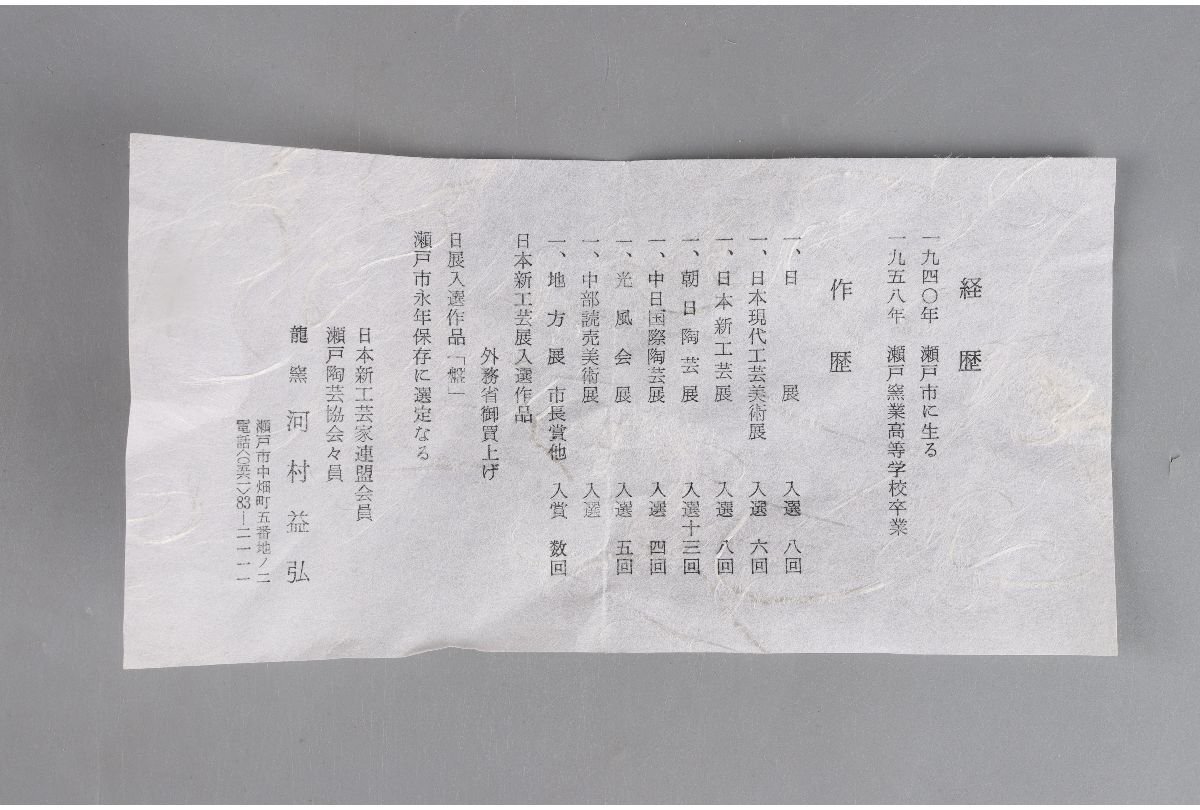 経歴
一九四〇年 瀬戸市に生る
一九五八年 瀬戸窯業高等学校卒業
作歴
一、日展 入選 八回
一、日本現代工芸美術展 入選 六回
一、日本新工芸展 入選 八回
一、朝日陶芸展 入選十三回
一、中日国際陶芸展 入選 四回
一、光風会展 入選 五回
一、中部読売美術展 入選
一、地方展 市長賞他 入賞 数回
日本新工芸展入選作品
外務省御買上げ
日展入選作品「盤」
瀬戸市永年保存に選定なる
日本新工芸家連盟会員
瀬戸陶芸協会々員
龍窯 河村益弘
瀬戸市中畑町五番地ノ二
電話〈〇五六一〉83―二一一一